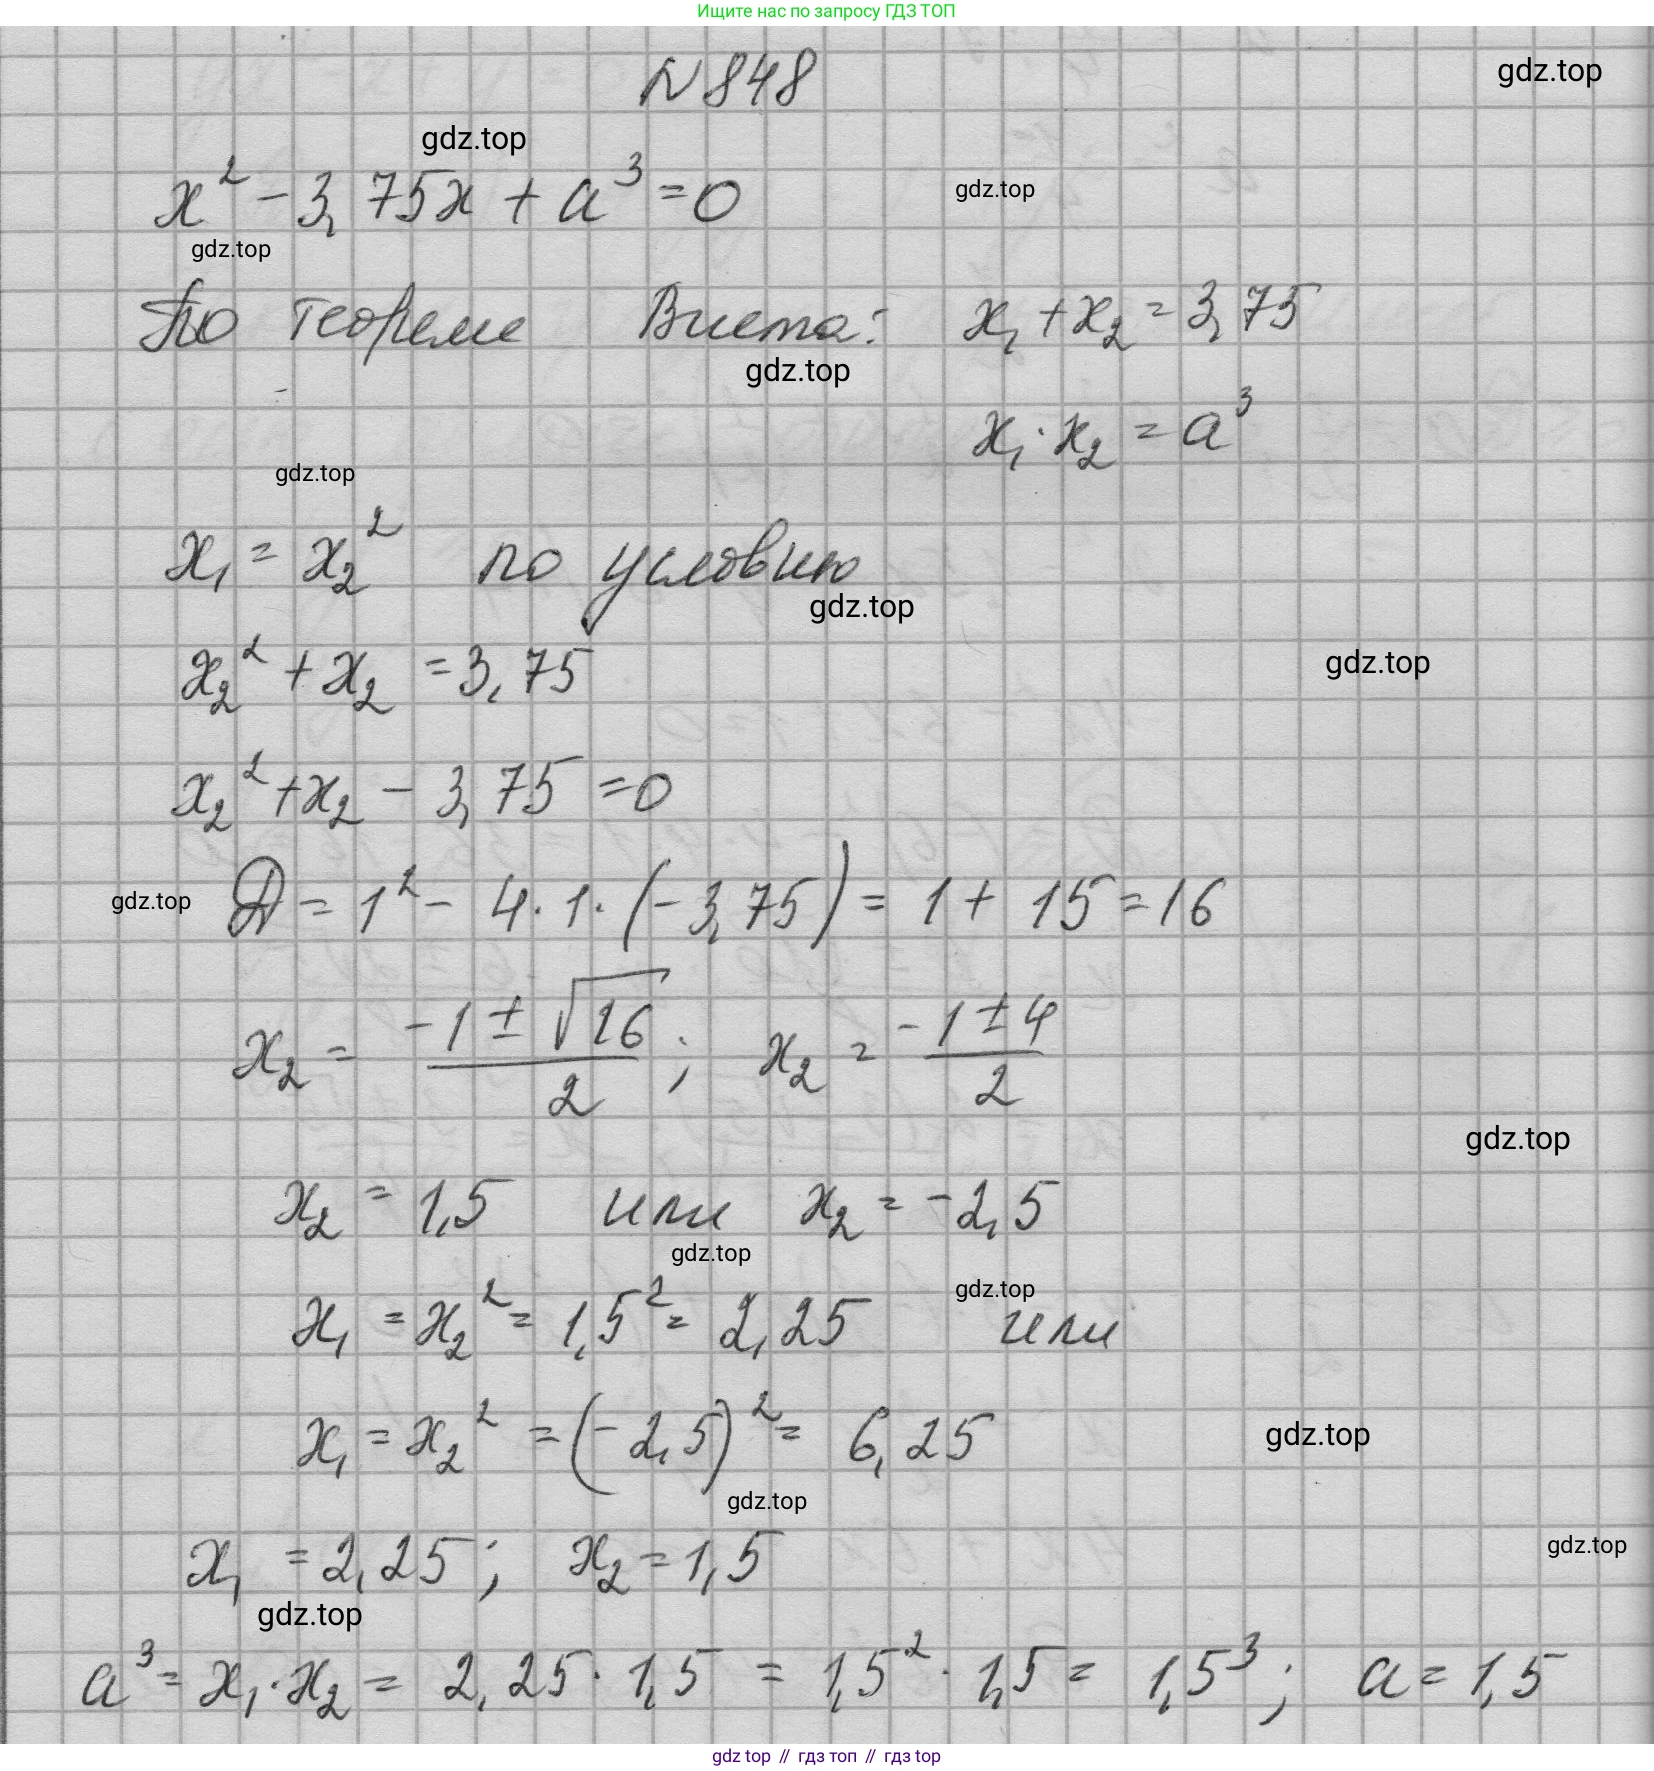 Ищите нас по запросу ГДЗ ТОП
N 848
gdz.top
gdz.top
x² - 3,75x + a³ = 0
gdz.top
gdz.top
По теореме Виета: x₁ + x₂ = 3,75
gdz.top
x₁ · x₂ = a³
gdz.top
x₁ = x₂² по условию
gdz.top
x₂² + x₂ = 3,75
gdz.top
x₂² + x₂ - 3,75 = 0
gdz.top
D = 1² - 4 · 1 · (-3,75) = 1 + 15 = 16
x₂ = (-1 ± √16)/2 ; x₂ = (-1 ± 4)/2
gdz.top
x₂ = 1,5 или x₂ = -2,5
gdz.top
gdz.top
x₁ = x₂² = 1,5² = 2,25 или
x₁ = x₂² = (-2,5)² = 6,25
gdz.top
gdz.top
x₁ = 2,25; x₂ = 1,5
gdz.top
gdz.top
a³ = x₁ · x₂ = 2,25 · 1,5 = 1,5² · 1,5 = 1,5³; a = 1,5
gdz top // гдз топ // gdz top